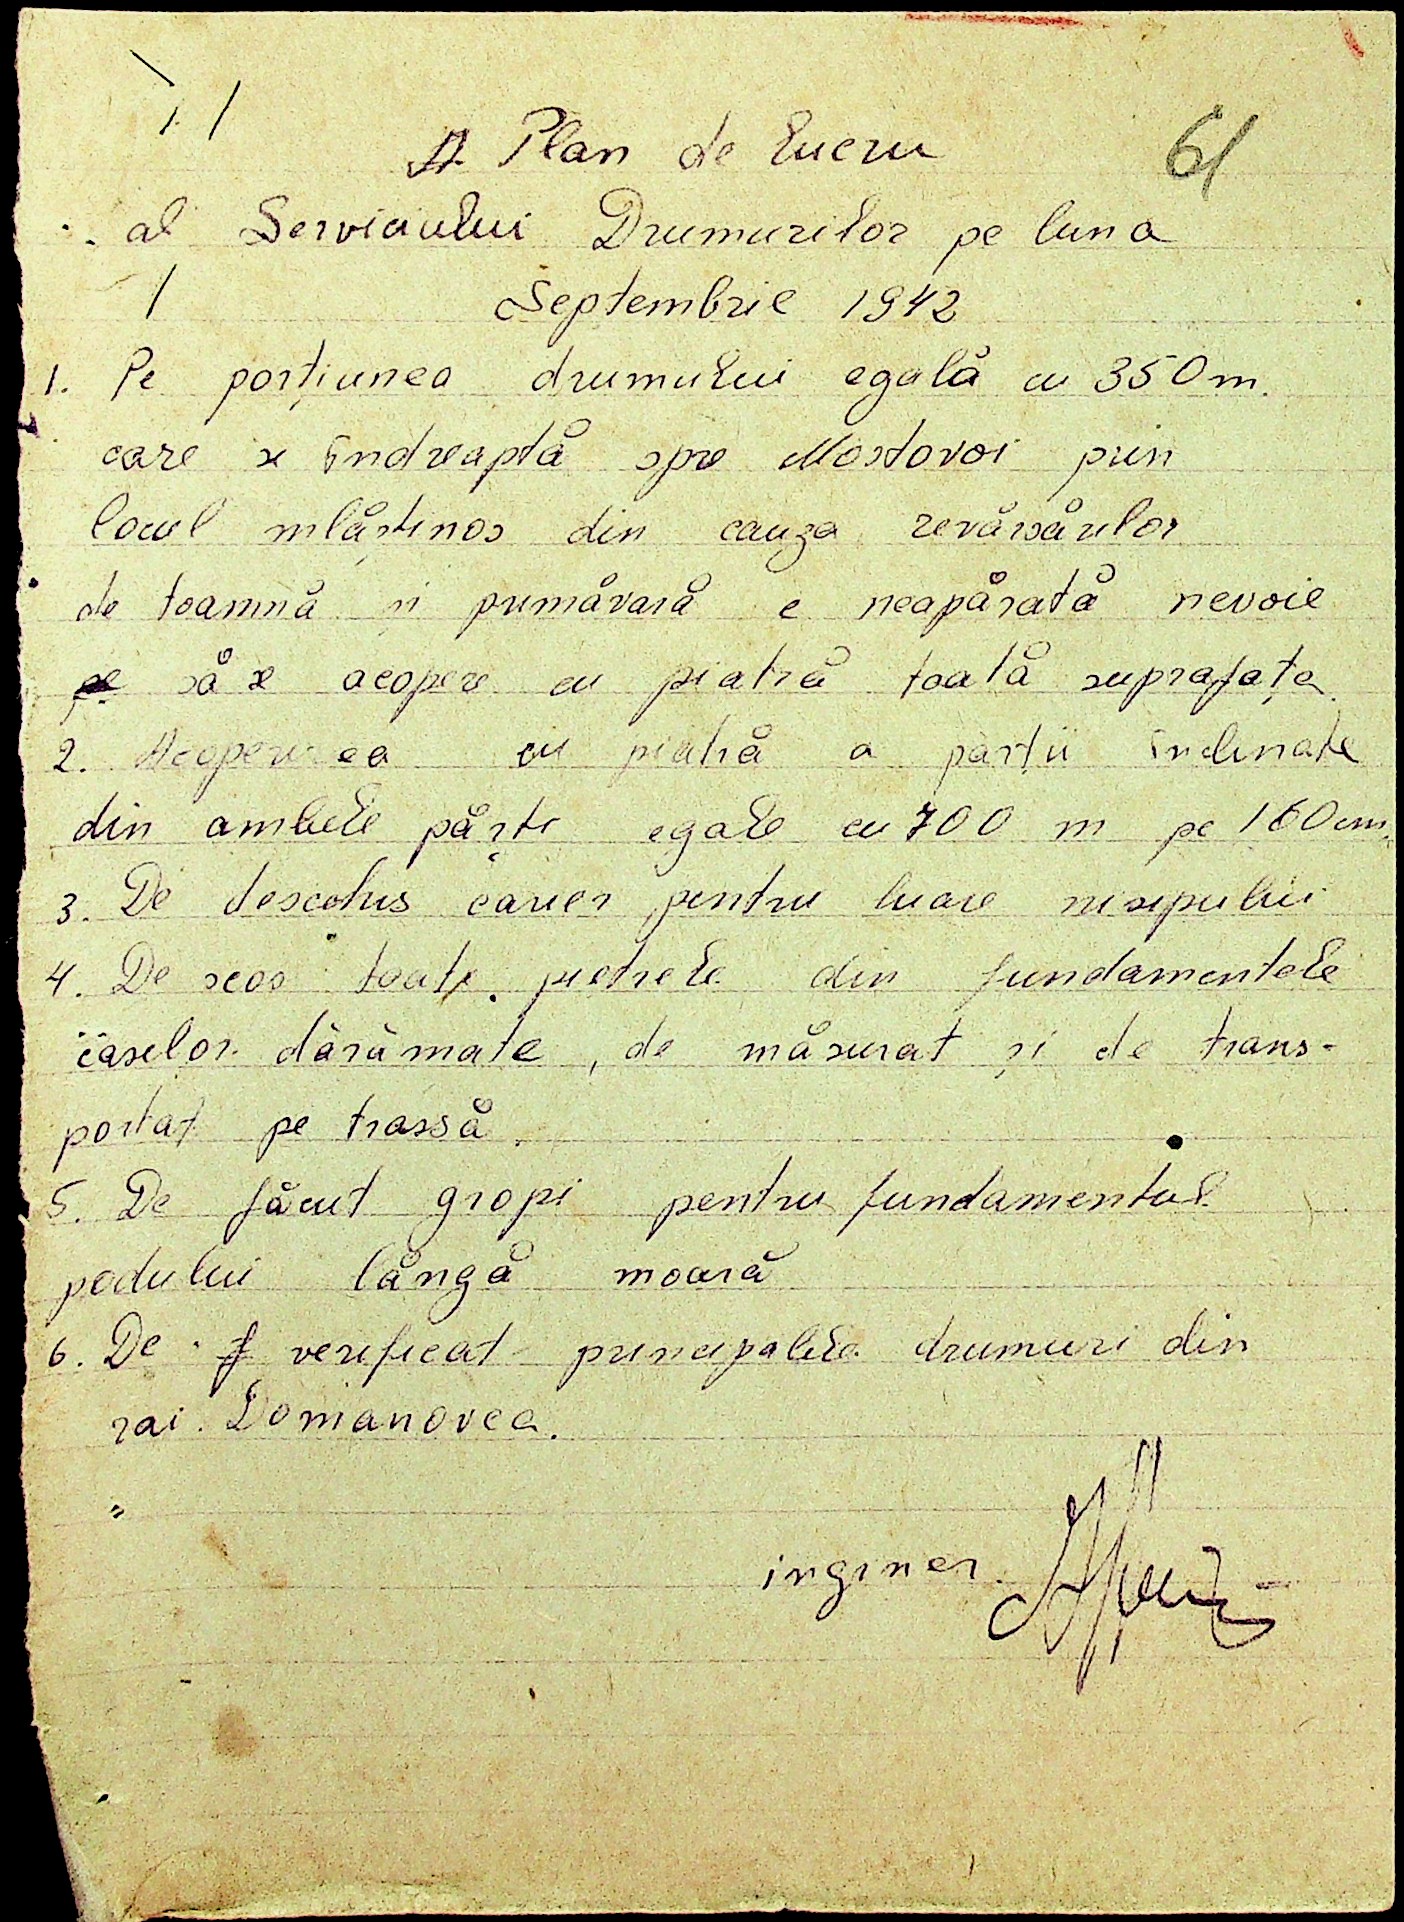 61
Plan de lucru
al Serviciului Drumurilor pe luna
Septembrie 1942
1. Pe porțiunea drumului egală cu 350 m.
care se îndreaptă spre Mostovoi prin
locul mlăștinos din cauza revărsărilor
de toamnă și primăvară e neapărată nevoie
să se acopere cu piatră toată suprafața.
2. Acoperirea cu piatră a părții înclinate
din ambele părți egale cu 700 m pe 160 cm.
3. De deschis carier pentru luare nisipului
4. De scos toate pietrele din fundamentele
caselor dărâmate, de măsurat și de trans-
portat pe trassă.
5. De făcut gropi pentru fundamentul
podului lângă moară
6. De verificat principalele drumuri din
rai. Domanovca.
inginer